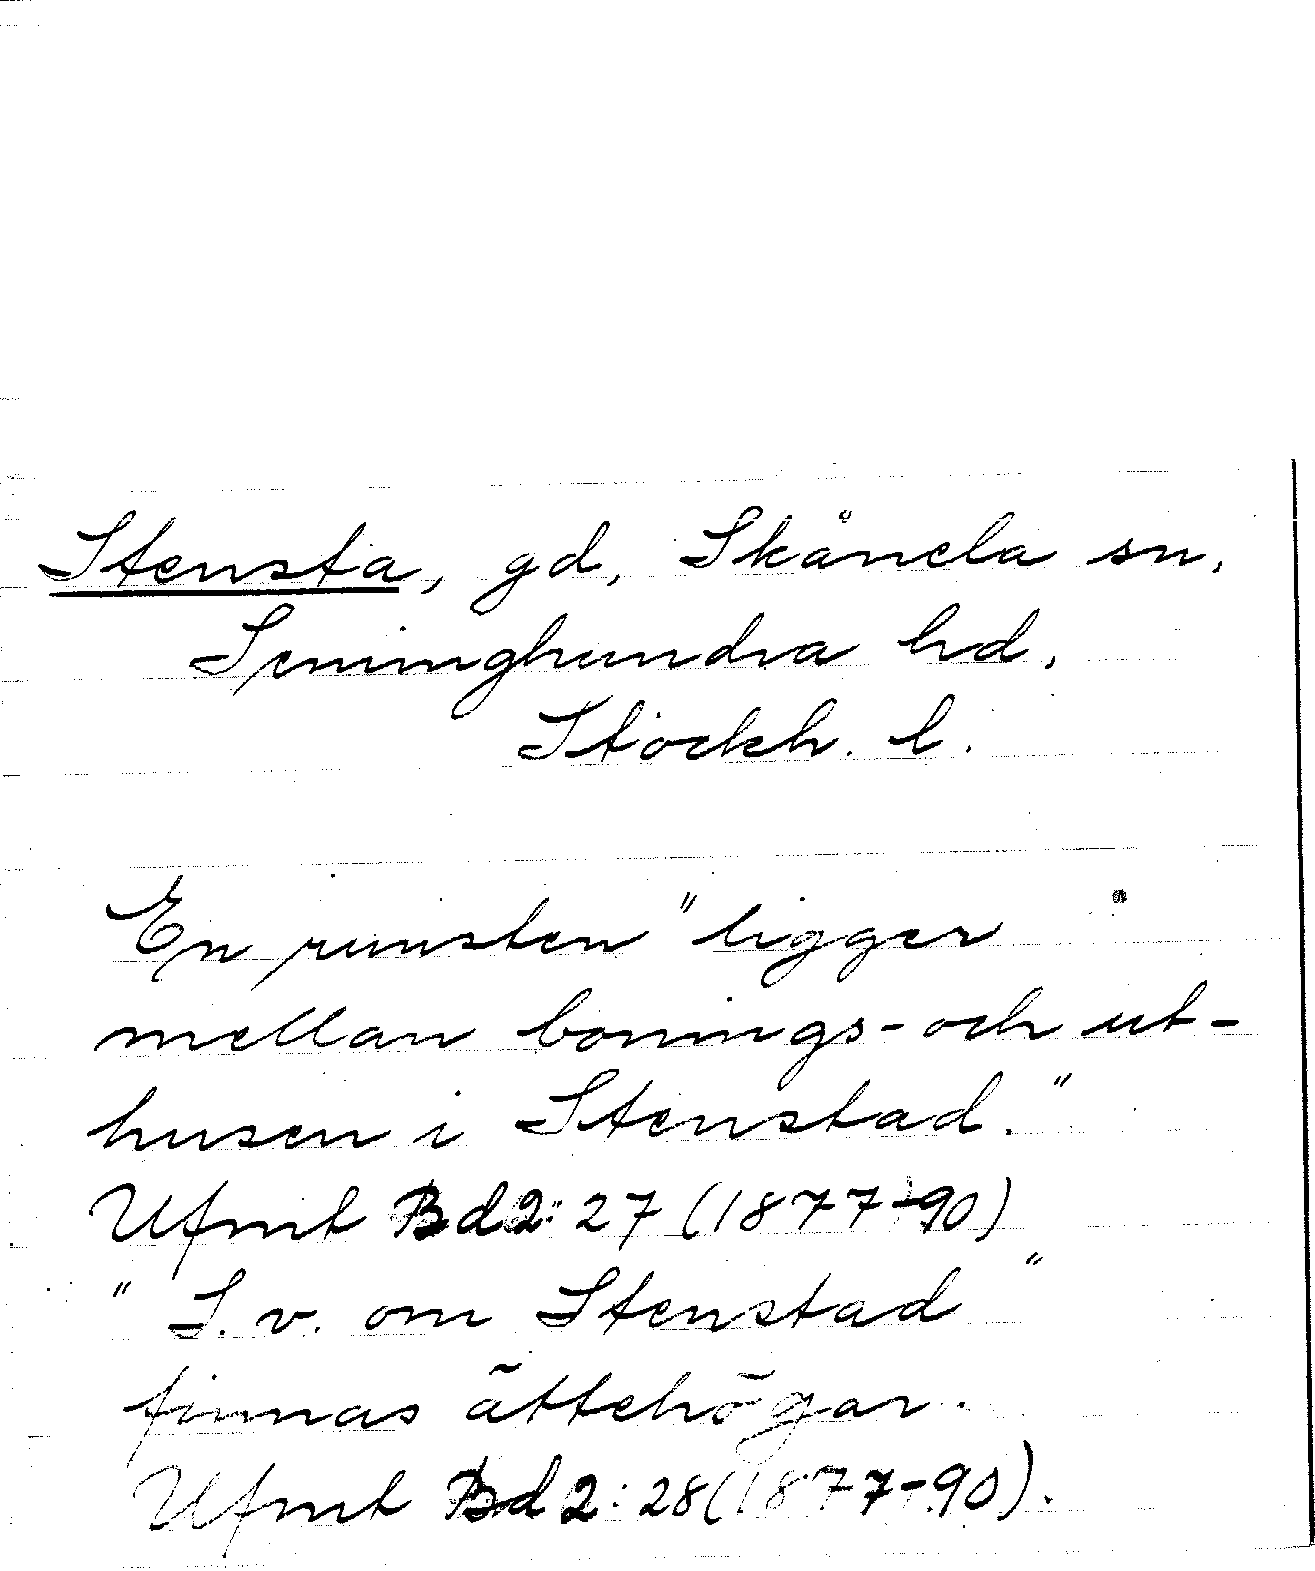 Stensta, gd, Skånela sn,
Seminghundra hd,
Stockh. l.
En runsten "ligger
mellan bonings- och ut-
husen i Stenstad."
Ufmt Bd 2: 27 (1877-90)
" S. v. om Stenstad "
finnas ättehögar.
Ufmt Bd 2: 28 (1877-90).